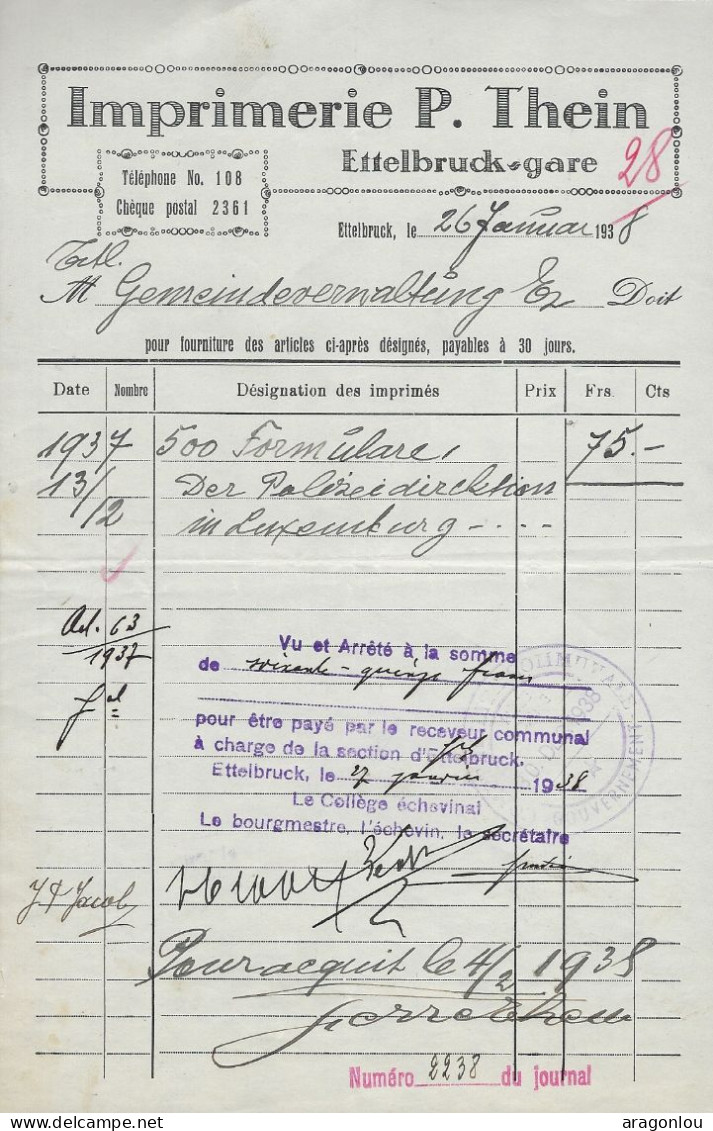 Imprimerie P. Thein
Ettelbruck-gare
28
Téléphone No. 108
Chèque postal 2361
Ettelbruck, le 26 Januar 1938
Titl.
M Gemeindeverwaltung Doit
pour fourniture des articles ci-après désignés, payables à 30 jours.
Date Nombre Désignation des imprimés Prix Frs. Cts
1937 500 Formulare, 75.-
13/12 Der Polizeidirektion
in Luxemburg - . . .
Art. 63
1937
Vu et Arrêté à la somme
de soixante-quinze francs
pour être payé par le receveur communal
à charge de la section d'Ettelbruck.
Ettelbruck, le 27 janvier 1938
Le Collège échevinal
Le bourgmestre, l'échevin, le secrétaire
J P Jacob
Pour acquit le 4/2 1938
Pierre Thein
Numéro 2238 du journal
aragonlou